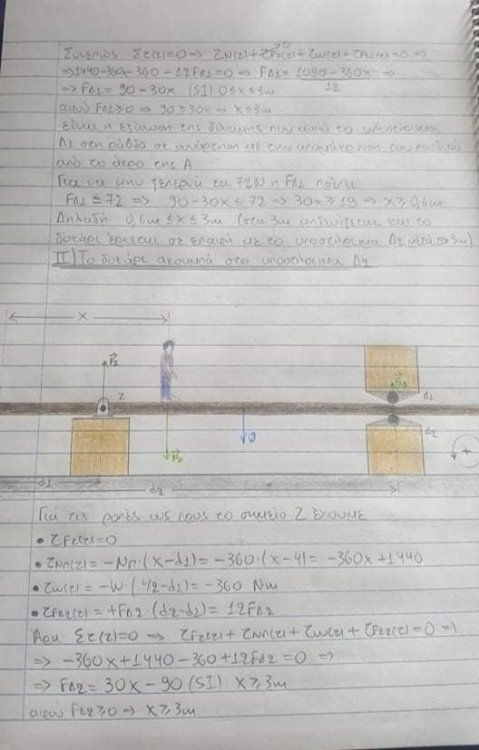 Συνεπώς Στ(z)=0 → τN(z) + τFz(z) + τw(z) + τFΔ1(z) = 0 ⇒
⇒ 1440-360x-360-12FΔ1=0 ⇒ FΔ1= 1080-360x / 12 ⇒
⇒ FΔ1= 90-30x (SI) 0≤x≤3m
αφού FΔ1≥0 ⇒ 90≥30x ⇒ x≤3m
είναι η εξίσωση της δύναμης που ασκεί το υποστήριγμα
Δ1 στη ράβδο σε συνάρτηση με την απομάκρυνση του παιδιού
από το άκρο της Α
Για να μην ξεπερνά τα 72N η FΔ1 πρέπει
FΔ1≤72 ⇒ 90-30x≤72 ⇒ 30x≥18 ⇒ x≥0,6m
Δηλαδή 0,6m≤x≤3m (στα 3m μηδενίζεται και το
δοκάρι έρχεται σε επαφή με το υποστήριγμα Δ2 μετά τα 3m)
II) Το δοκάρι ακουμπά στο υποστήριγμα Δ2
x
Fz
z
Δ1
Δ2
+
d1
d2
Για τις ροπές ως προς το σημείο Z έχουμε
• τFz(z)=0
• τNπ(z)= -Nπ·(x-d1)= -360·(x-4)= -360x+1440
• τw(z)= -W·(L/2-d1)= -360 Nm
• τFΔ2(z)= +FΔ2·(d2-d1)= 12FΔ2
Άρα Στ(z)=0 ⇒ τFz(z)+τNπ(z)+τw(z)+τFΔ2(z)=0 ⇒
⇒ -360x+1440-360+12FΔ2=0 ⇒
⇒ FΔ2= 30x-90 (SI) x≥3m
αφού FΔ2≥0 ⇒ x≥3m